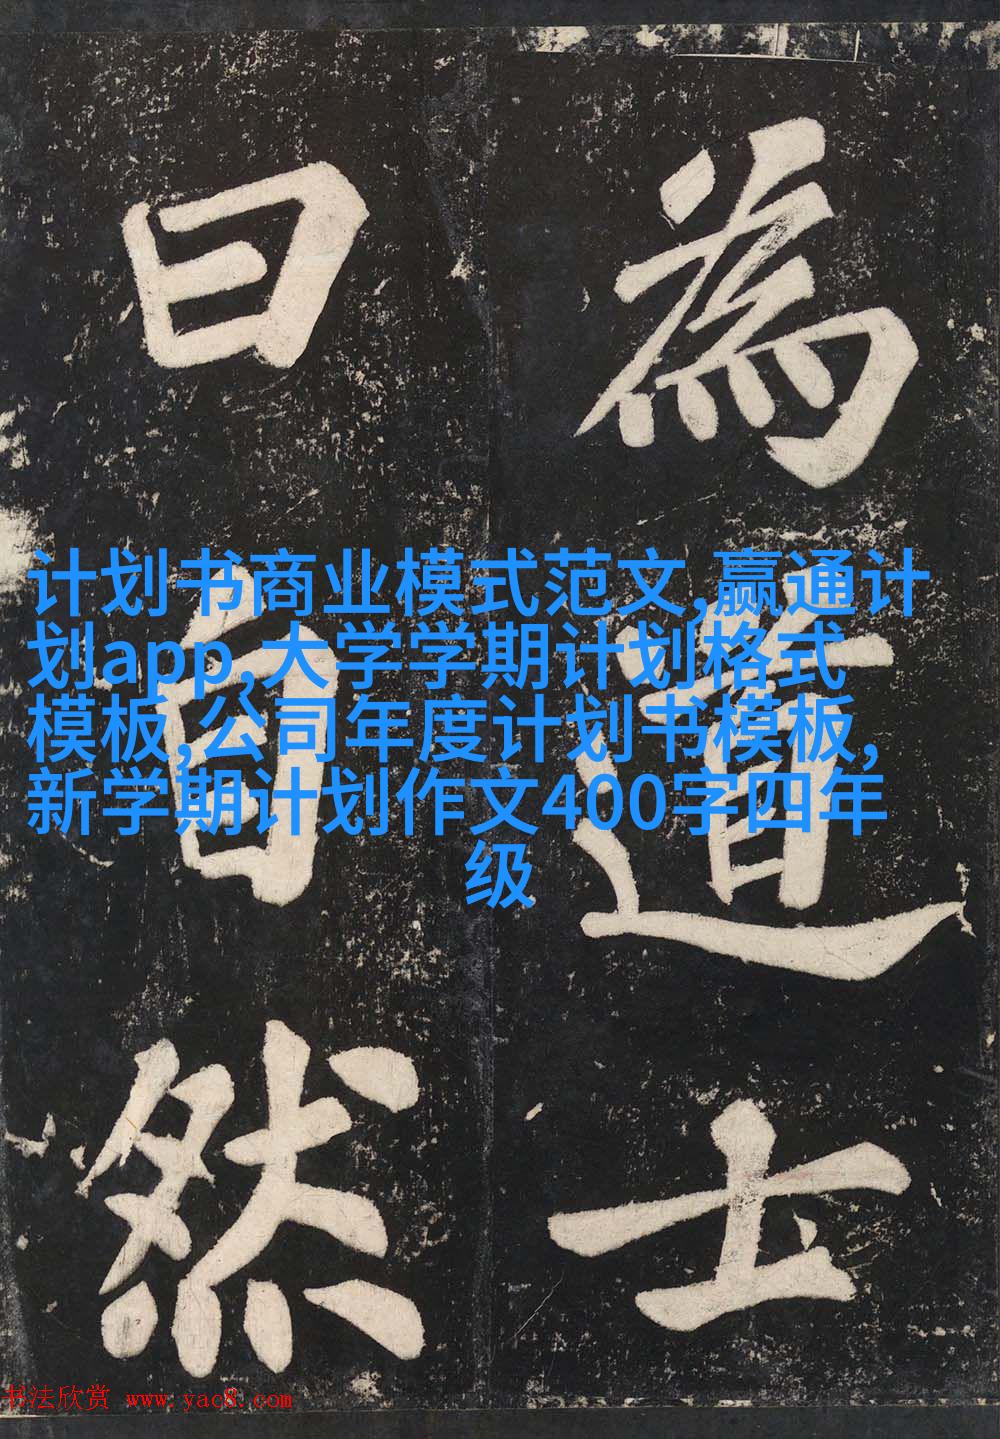 為道士
曰自然
计划书商业模式范文,赢通计
划app,大学学期计划格式
模板,公司年度计划书模板,
新学期计划作文400字四年
级
书法欣赏 www.yac8.com